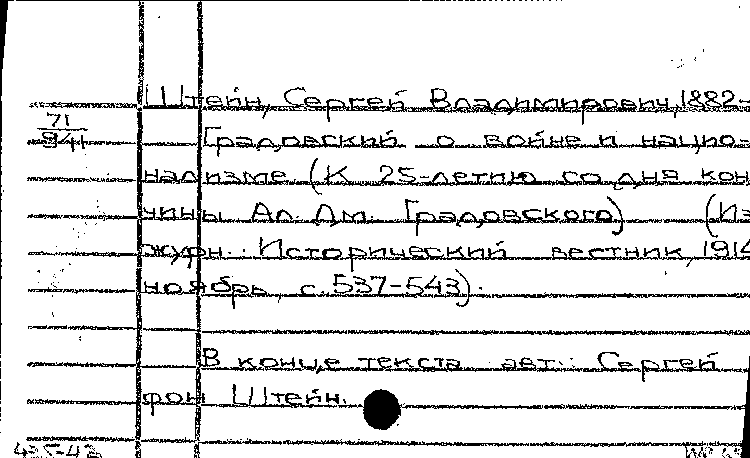 Штейн, Сергей Владимирович, 1882-
71
94
Градовский о войне и нацио-
нализме. (К 25-летию со дня кон
чины Ал. Дм. Градовского) (Из
журн.: Исторический вестник, 1914
ноябрь, с. 537-543).
В конце текста авт.: Сергей
фон Штейн.
425-43